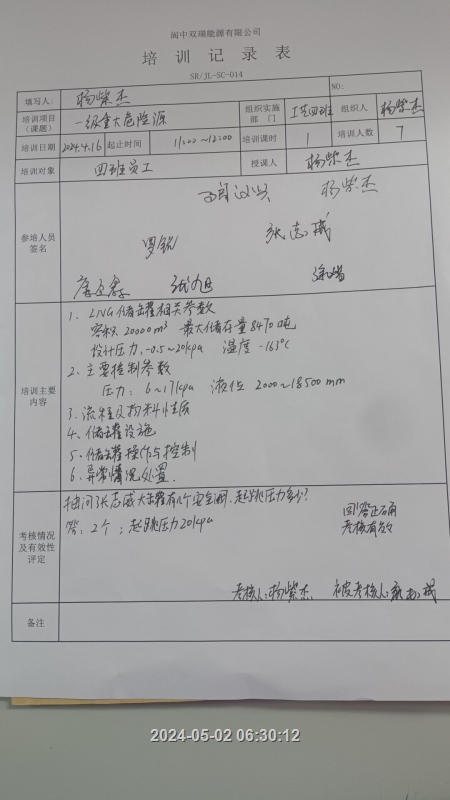 阆中双瑞能源有限公司
培训记录表
SR/JL-SC-014
NO:
填写人: 杨紫杰
培训项目(课题) 一级重大危险源 组织实施部门 工艺四班 组织人 杨紫杰
培训日期 2024.4.16 起止时间 11:00~12:00 培训课时 1 培训人数 7
培训对象 四班员工 授课人 杨紫杰
参培人员签名
杨紫杰
罗铭 张志威
张旭
培训主要内容
1、LNG储罐相关参数
容积20000m³ 最大储存量8470吨
设计压力-0.5~20kpa 温度-163℃
2、主要控制参数
压力:6~17kpa 液位2000~18500mm
3、流程及物料性质
4、储罐设施
5、储罐操作与控制
6、异常情况处置.
考核情况及有效性评定
抽问张志威大罐有几个安全阀、起跳压力多少?
答:2个;起跳压力20kpa
回答正确
考核有效
考核人:杨紫杰. 被考核人:张志威
备注
2024-05-02 06:30:12